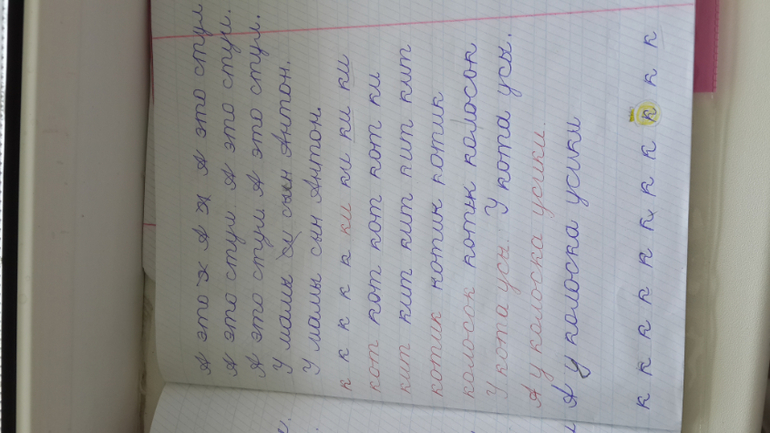 А это ж А Я А это стул
А это стул. А это стул.
А это стул А это стул.
У мамы сын Антон.
У мамы сын Антон.
к к к к ки ки ки ки
кот кот кот кот ки
кит кит кит кит кит
котик котик котик
колосок котик колосок
У кота усы. У кота усы.
А у колоска усики
А у колоска усики
к к к к к к к к к к к